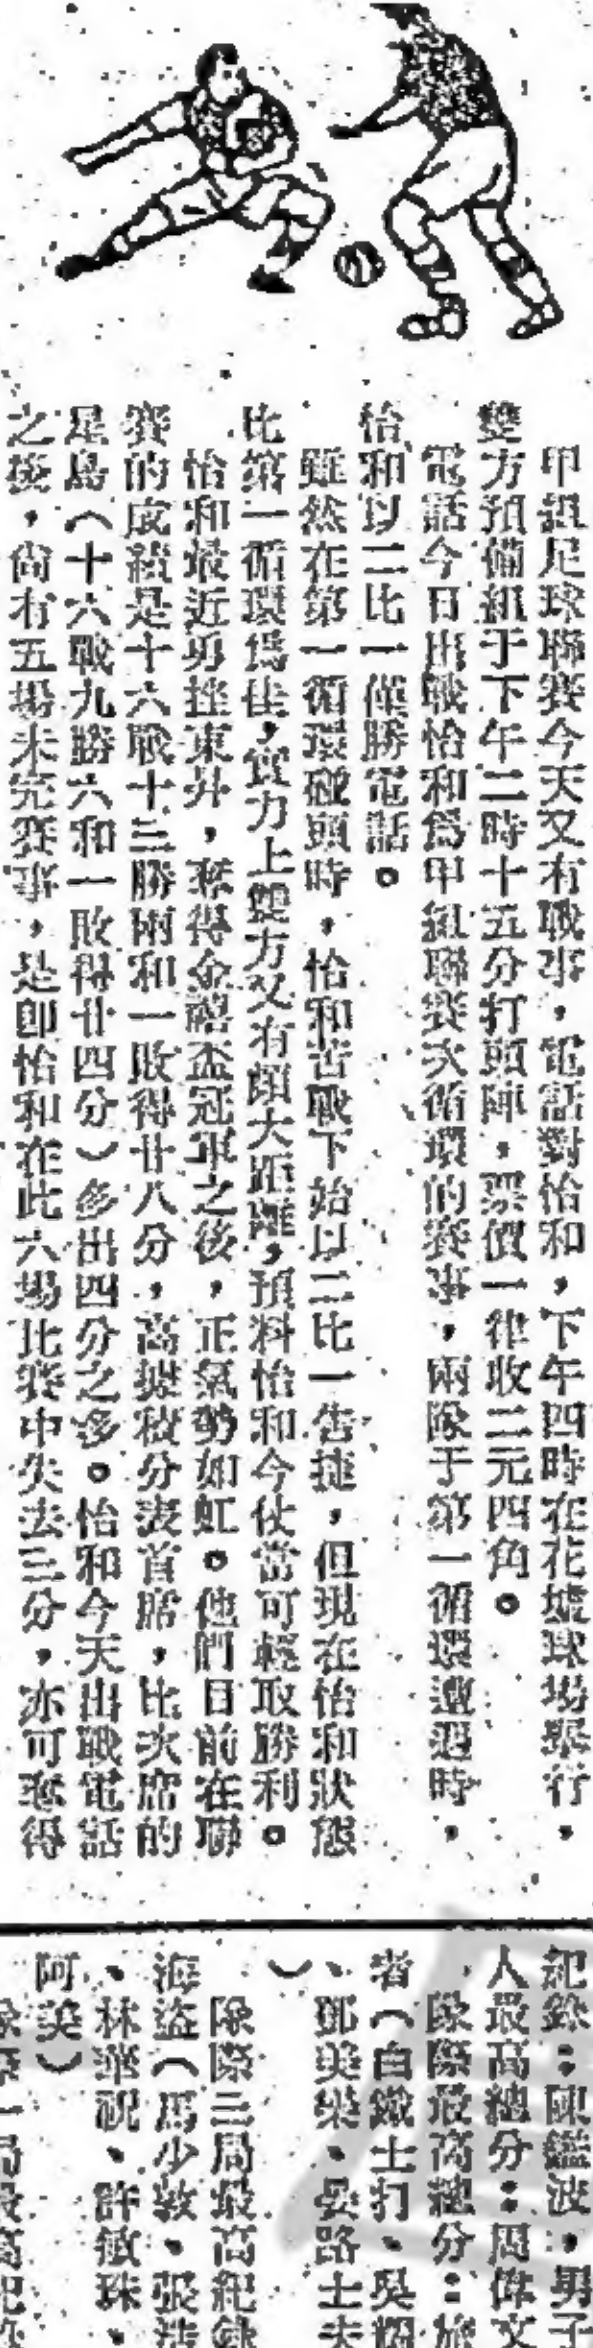 甲組足球聯賽今天又有戰事，電話對怡和，下午四時在花墟球場舉行，
雙方預備組于下午二時十五分打頭陣，票價一律收二元四角。
電話今日出戰怡和爲甲組聯賽次循環的賽事，兩隊于第一循環遭遇時，
怡和以二比一僅勝電話。
雖然在第一循環碰頭時，怡和苦戰下始以二比一告捷，但現在怡和狀態
比第一循環爲佳，實力上雙方又有頗大距離，預料怡和今仗當可輕取勝利。
怡和最近勇挫東昇，奪得金禧盃冠軍之後，正氣勢如虹。他們目前在聯
賽的成績是十六戰十三勝兩和一敗得廿八分，高據積分表首席，比次席的
星島（十六戰九勝六和一敗得廿四分）多出四分之多。怡和今天出戰電話
之後，尚有五場未完賽事，是即怡和在此六場比賽中失去三分，亦可奪得
紀錄：陳鑑波，男子
人最高總分：周偉文
隊際最高總分：旅
者（白鐵士打、吳
、鄧美樂、晏路士夫
）
隊際三局最高紀錄
海盜（馬少敦、張浩
、林華祝、許敏珠、
阿美）
一局最高紀錄